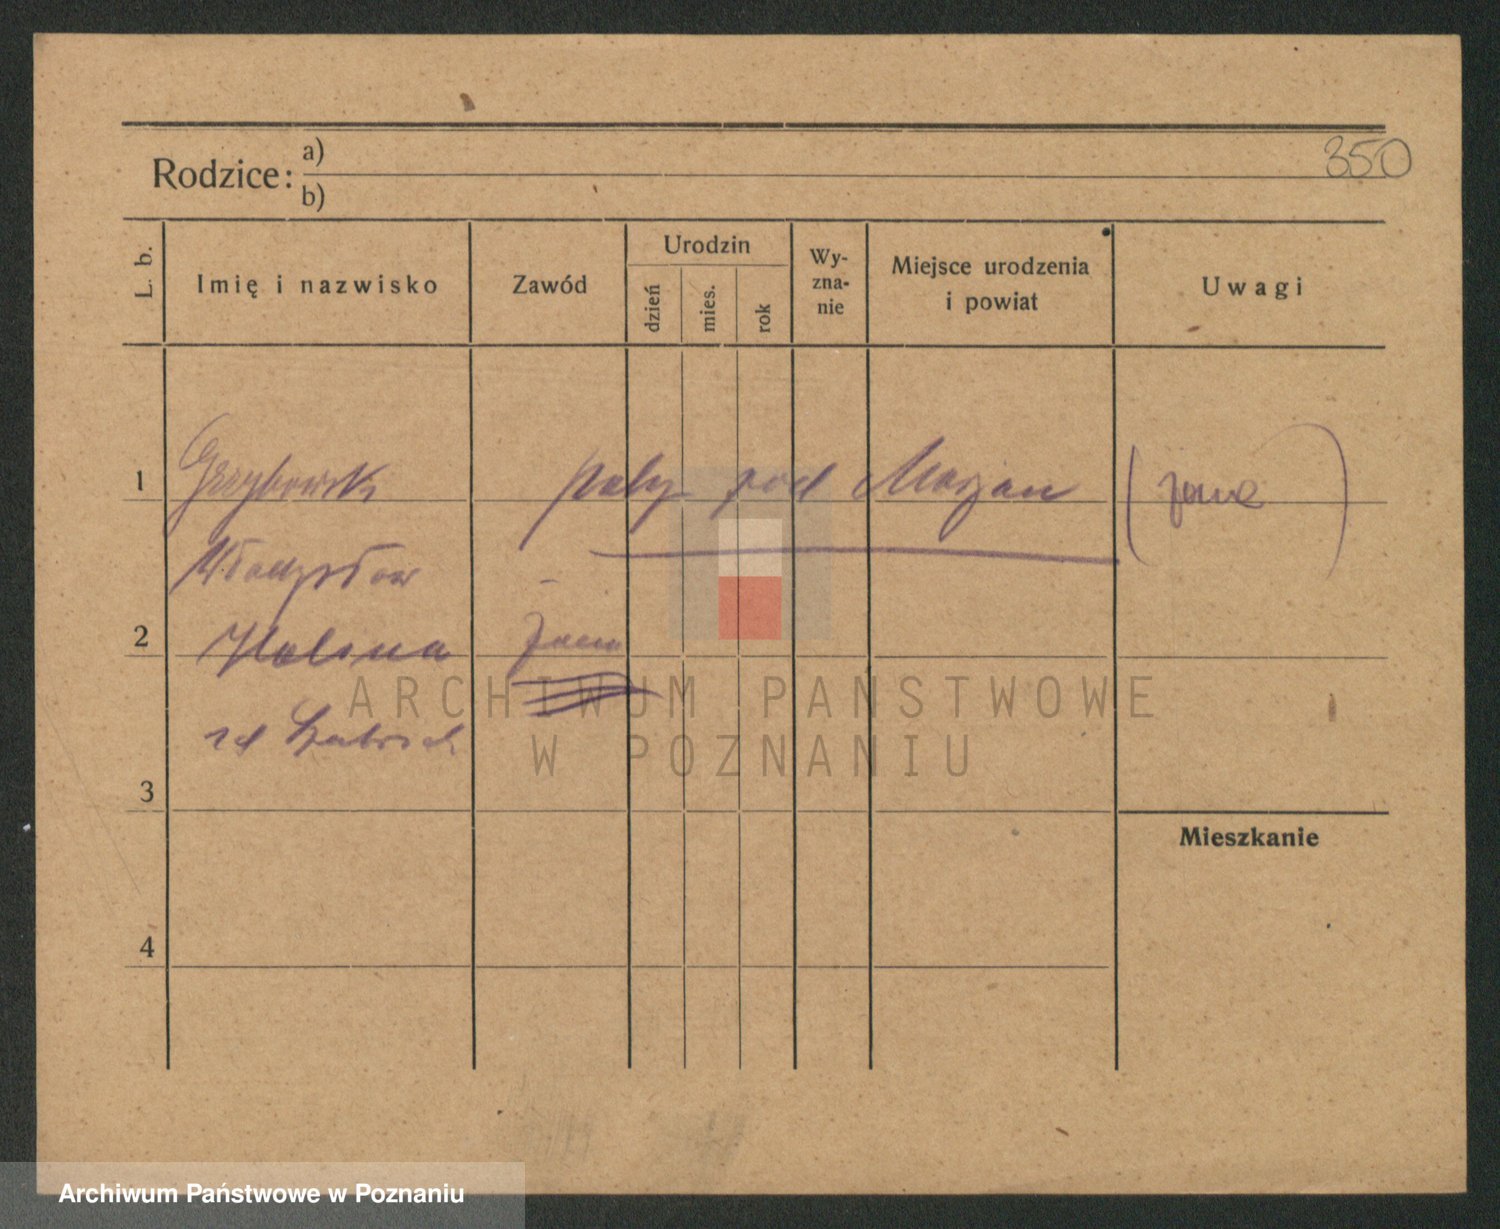 350
Rodzice: a)
b)
L. b.
Imię i nazwisko
Zawód
Urodzin
dzień
mies.
rok
Wy-
zna-
nie
Miejsce urodzenia
i powiat
Uwagi
1
Grzybowski
pod Marjan
Władysław
2
Halina
3
Mieszkanie
4
ARCHIWUM PAŃSTWOWE
W POZNANIU
Archiwum Państwowe w Poznaniu